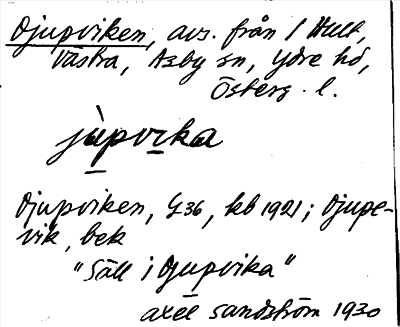 Djupviken, avs. från 1 Hult,
Västra, Asby sn, Ydre hd,
Österg. l.
jùpvika
Djupviken, G36, kb 1921; Djupe-
vik, bek
"Säll i Djupvika"
Axel Sandström 1930